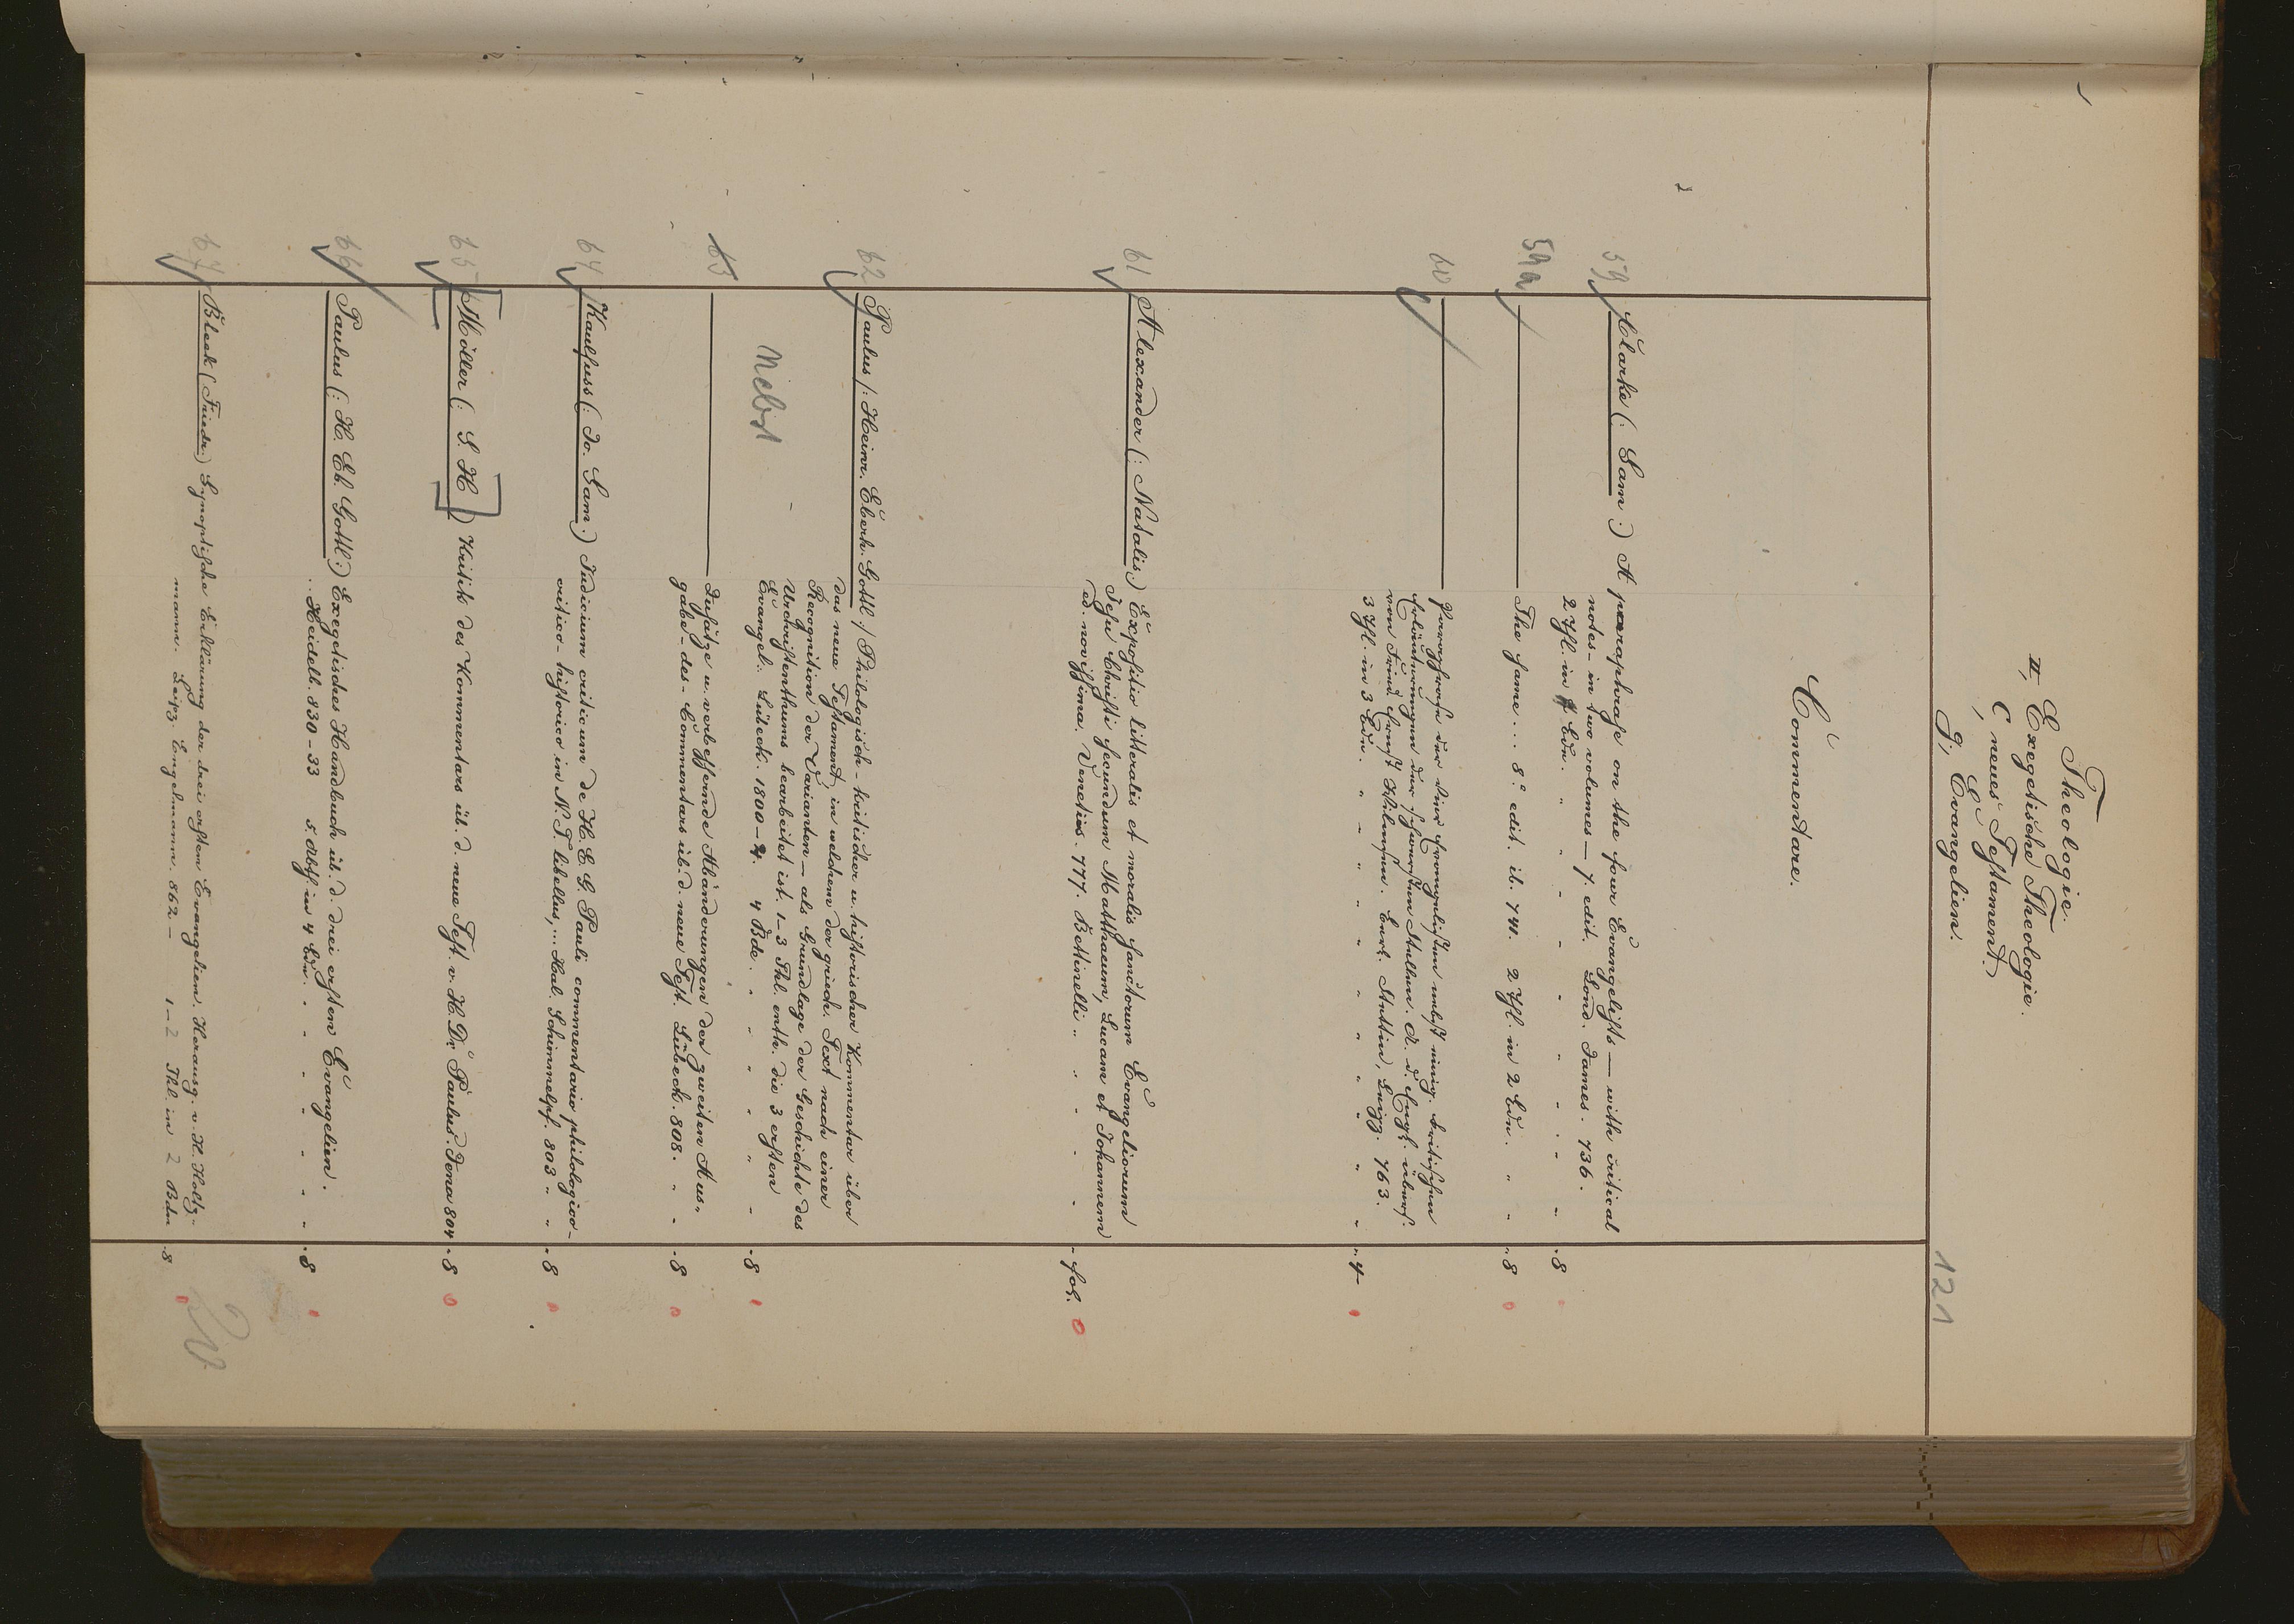 Theologie.
II, Exegetische Theologie.
C, neues Testament.)
g, Evangelien.
121
Commentare.
59 Clarke (: Sam :) A paraphrase on the four Evangelists — with critical
notes - in two volumes — 7. edit. Lond. James. 736.
2 Thl. in Bdn. " " - - - - - - - 8
59a ——— The same .... 8. edit. ib. 741. 2 Thl. in 2 Bdn. " - - 8
60 ——— Paraphrase der vier Evangelisten nebst einig. kritischen
Erläuterungen der schwersten Stellen. A. d. Engl. übers.
von Fried. Ernst Wilmsen. Berl. Stettin, Leipz. 763.
3 Thl. in 3 Bdn. " - " " " " " " " " - 4
61 Alexander (: Natalis :) Expositio litteralis et moralis sanctorum Evangeliorum
Jesu Christi secundum Matthaeum, Lucam et Johannem
ed. novissima. Venetiis. 777. Bettinelli " " - - - - fol.
62 Paulus /: Heinr. Eberh. Gottl :/ Philologisch-kritischer u. historischer Kommentar über
das neue Testament, in welchem der griech. Text nach einer
Recognition der Varianten — als Grundlage der Geschichte des
Urchristenthums bearbeitet ist. 1-3 Thl. enth. die 3 ersten
Evangel. Lübeck. 1800-4. 4 Bde. " " " - " - - 8
Nebst
63 ——— Zusätze u. verbessernde Abänderungen der zweiten Aus-
gabe - des - Commentars üb. d. neue Test. Lübeck. 808. " - - 8
64 Kaulfuss (: Jo. Sam :) Iudicium criticum de H. E. G. Pauli commentario philologico-
critico-historico in N. T. libellus,... Hal. Schimmelpf. 803 " " - 8
65 Möller (: S. H :) Kritik des Kommentars üb. d. neue Test. v. H. Dr. Paulus. Jena 804 - 8
66 Paulus (: H. Eb. Gottl :) Exegetisches Handbuch üb. d. drei ersten Evangelien.
Heidelb. 830-33 5. Abth. in 4 Bdn. - - - - - - - 8
67 Bleek (: Friedr :) Synoptische Erklärung der drei ersten Evangelien. Herausg. v. H. Holtz-
mann. Leipz. Engelmann. 862 - 1-2 Thl. in 2 Bdn - 8